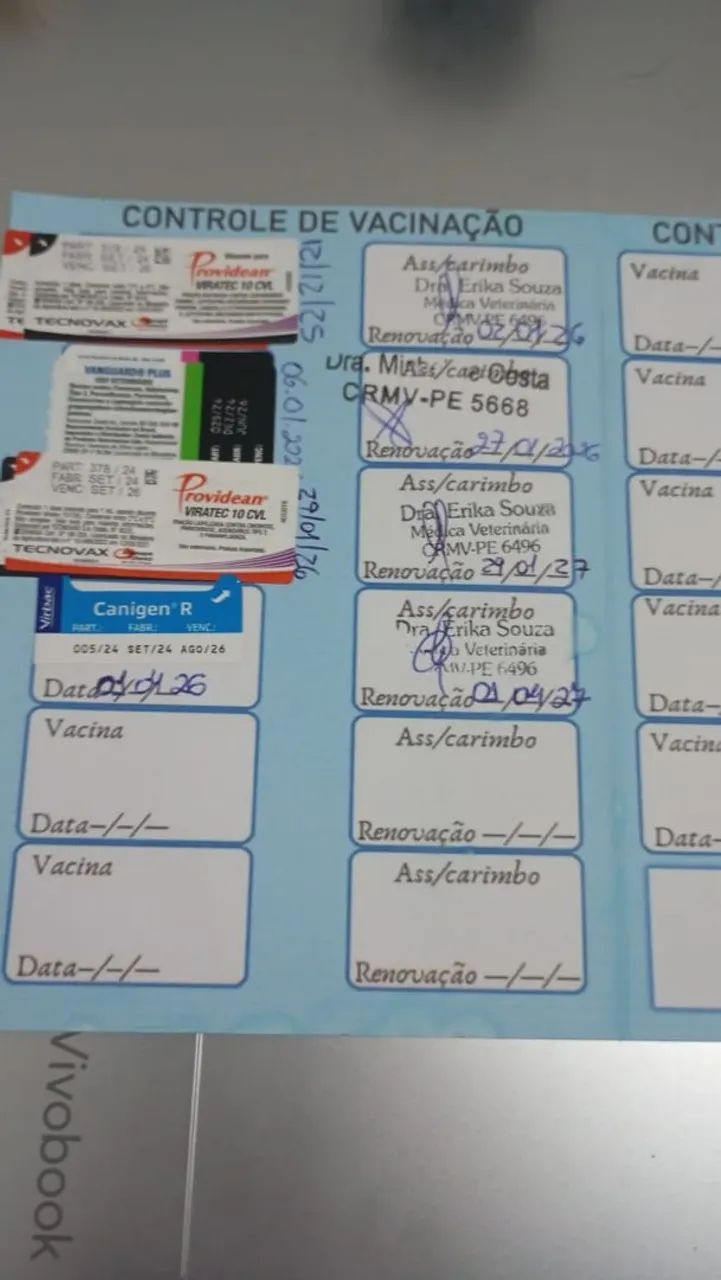 CONTROLE DE VACINAÇÃO
PART: 378 / 24
FABR: SET / 24
VENC: SET / 26
Providean
VIRATEC 10 CVL
TECNOVAX
12/12/25
Ass/carimbo
Dra. Erika Souza
Médica Veterinária
CRMV-PE 6496
Renovação 02/01/26
VANGUARD® PLUS
USO VETERINÁRIO
PART:
FABR:
VENC:
029/24
DEZ/24
JUN/26
06.01.202
Ass/carimbo
Dra. e Costa
CRMV-PE 5668
Renovação 27/01/2026
PART: 378 / 24
FABR: SET / 24
VENC: SET / 26
Providean
VIRATEC 10 CVL
TECNOVAX
29/01/26
Ass/carimbo
Dra. Erika Souza
Médica Veterinária
CRMV-PE 6496
Renovação 29/01/27
Virbac
Canigen® R
PART.: FABR.: VENC.:
005/24 SET/24 AGO/26
Data 01/26
Ass/carimbo
Dra. Erika Souza
Veterinária
PE 6496
Renovação 01/04/27
Vacina
Data–/–/–
Ass/carimbo
Renovação –/–/–
Vacina
Data–/–/–
Ass/carimbo
Renovação –/–/–
CONT
Vacina
Data–/–
Vacina
Data–/
Vacina
Data–/
Vacina
Data–
Vacin
Data–
Vivobook